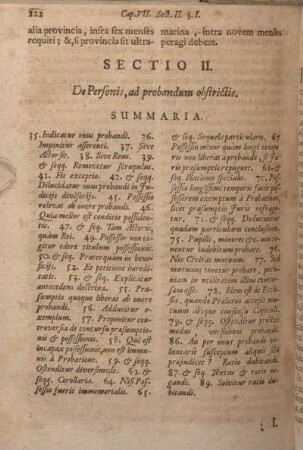 222 Cap. VII. Sect. II. §. I.
alia provincia, infra sex menses
requiri; &, si provincia sit ultra-
marina, intra novem menses
peragi debent.
SECTIO II.
De Personis, ad probandum obstrictis.
SUMMARIA.
35. Indicatur onus probandi. 36.
Imponitur asserenti. 37. Sive
Actor sit. 38. Sive Reus. 39.
& seqq. Removetur scrupulus.
41. Fit exceptio. 43. & seq.
Dilucidatur onus probandi in Ju-
diciis divisoriis. 45. Possessio
relevat ab onere probandi. 46.
Quia melior est conditio possiden-
tis. 47. & seq. Tam Actoris,
quàm Rei. 49. Possessor non co-
gitur edere titulum possessionis.
50. & seq. Præterquàm in bene-
ficiis. 52. Et petitione heredi-
tatis. 53. & seq. Explicatur
antecedens doctrina. 55. Præ-
sumptio quoque liberat ab onere
probandi. 56. Adducitur ex-
emplum. 57. Proponitur con-
troversia de concursu præsumptio-
nis & possessionis. 58. Qui est
incapax possessionis, non est immu-
nis à Probatione. 59. & seqq.
Ostenditur diversimodè. 62. &
seq. Corollaria. 64. Nisi Pos-
sessio fuerit immemorialis. 65.
& seq. Sequele particulares. 67
Possessio minor quàm longi tempo-
ris non liberat à probando, si Ju-
ris præsumptio repugnet. 68. &
seqq. Illatiores speciales. 70. Pos-
sessio longissimi temporis facit pos-
sessorem exemptum à Probatione,
licet præsumptio Juris refraga-
tur. 71. & seqq. Deducuntur
quædam particulares conclusiones.
75. Pupilli, minores &c. monentur
indistinctè probare. 76.
Nec Civitas immunis. 77. Sed
mutuum tenetur probare, pe-
cuniam in utilitatem illius fuisse
conversam. 78. Idem est de Eccle-
sia, quando Prælatus accepit mu-
tuum absque consensu Capituli.
79. & seqq. Ostenditur proba-
modus versionis probandi.
86. An per unus probandi volun-
tariè susceptum aliqui sibi
præjudicet? Ratio dubitandi.
87. & seq. Textus & ratio ne-
gandi. 89. Solvitur ratio du-
bitandi.
I.